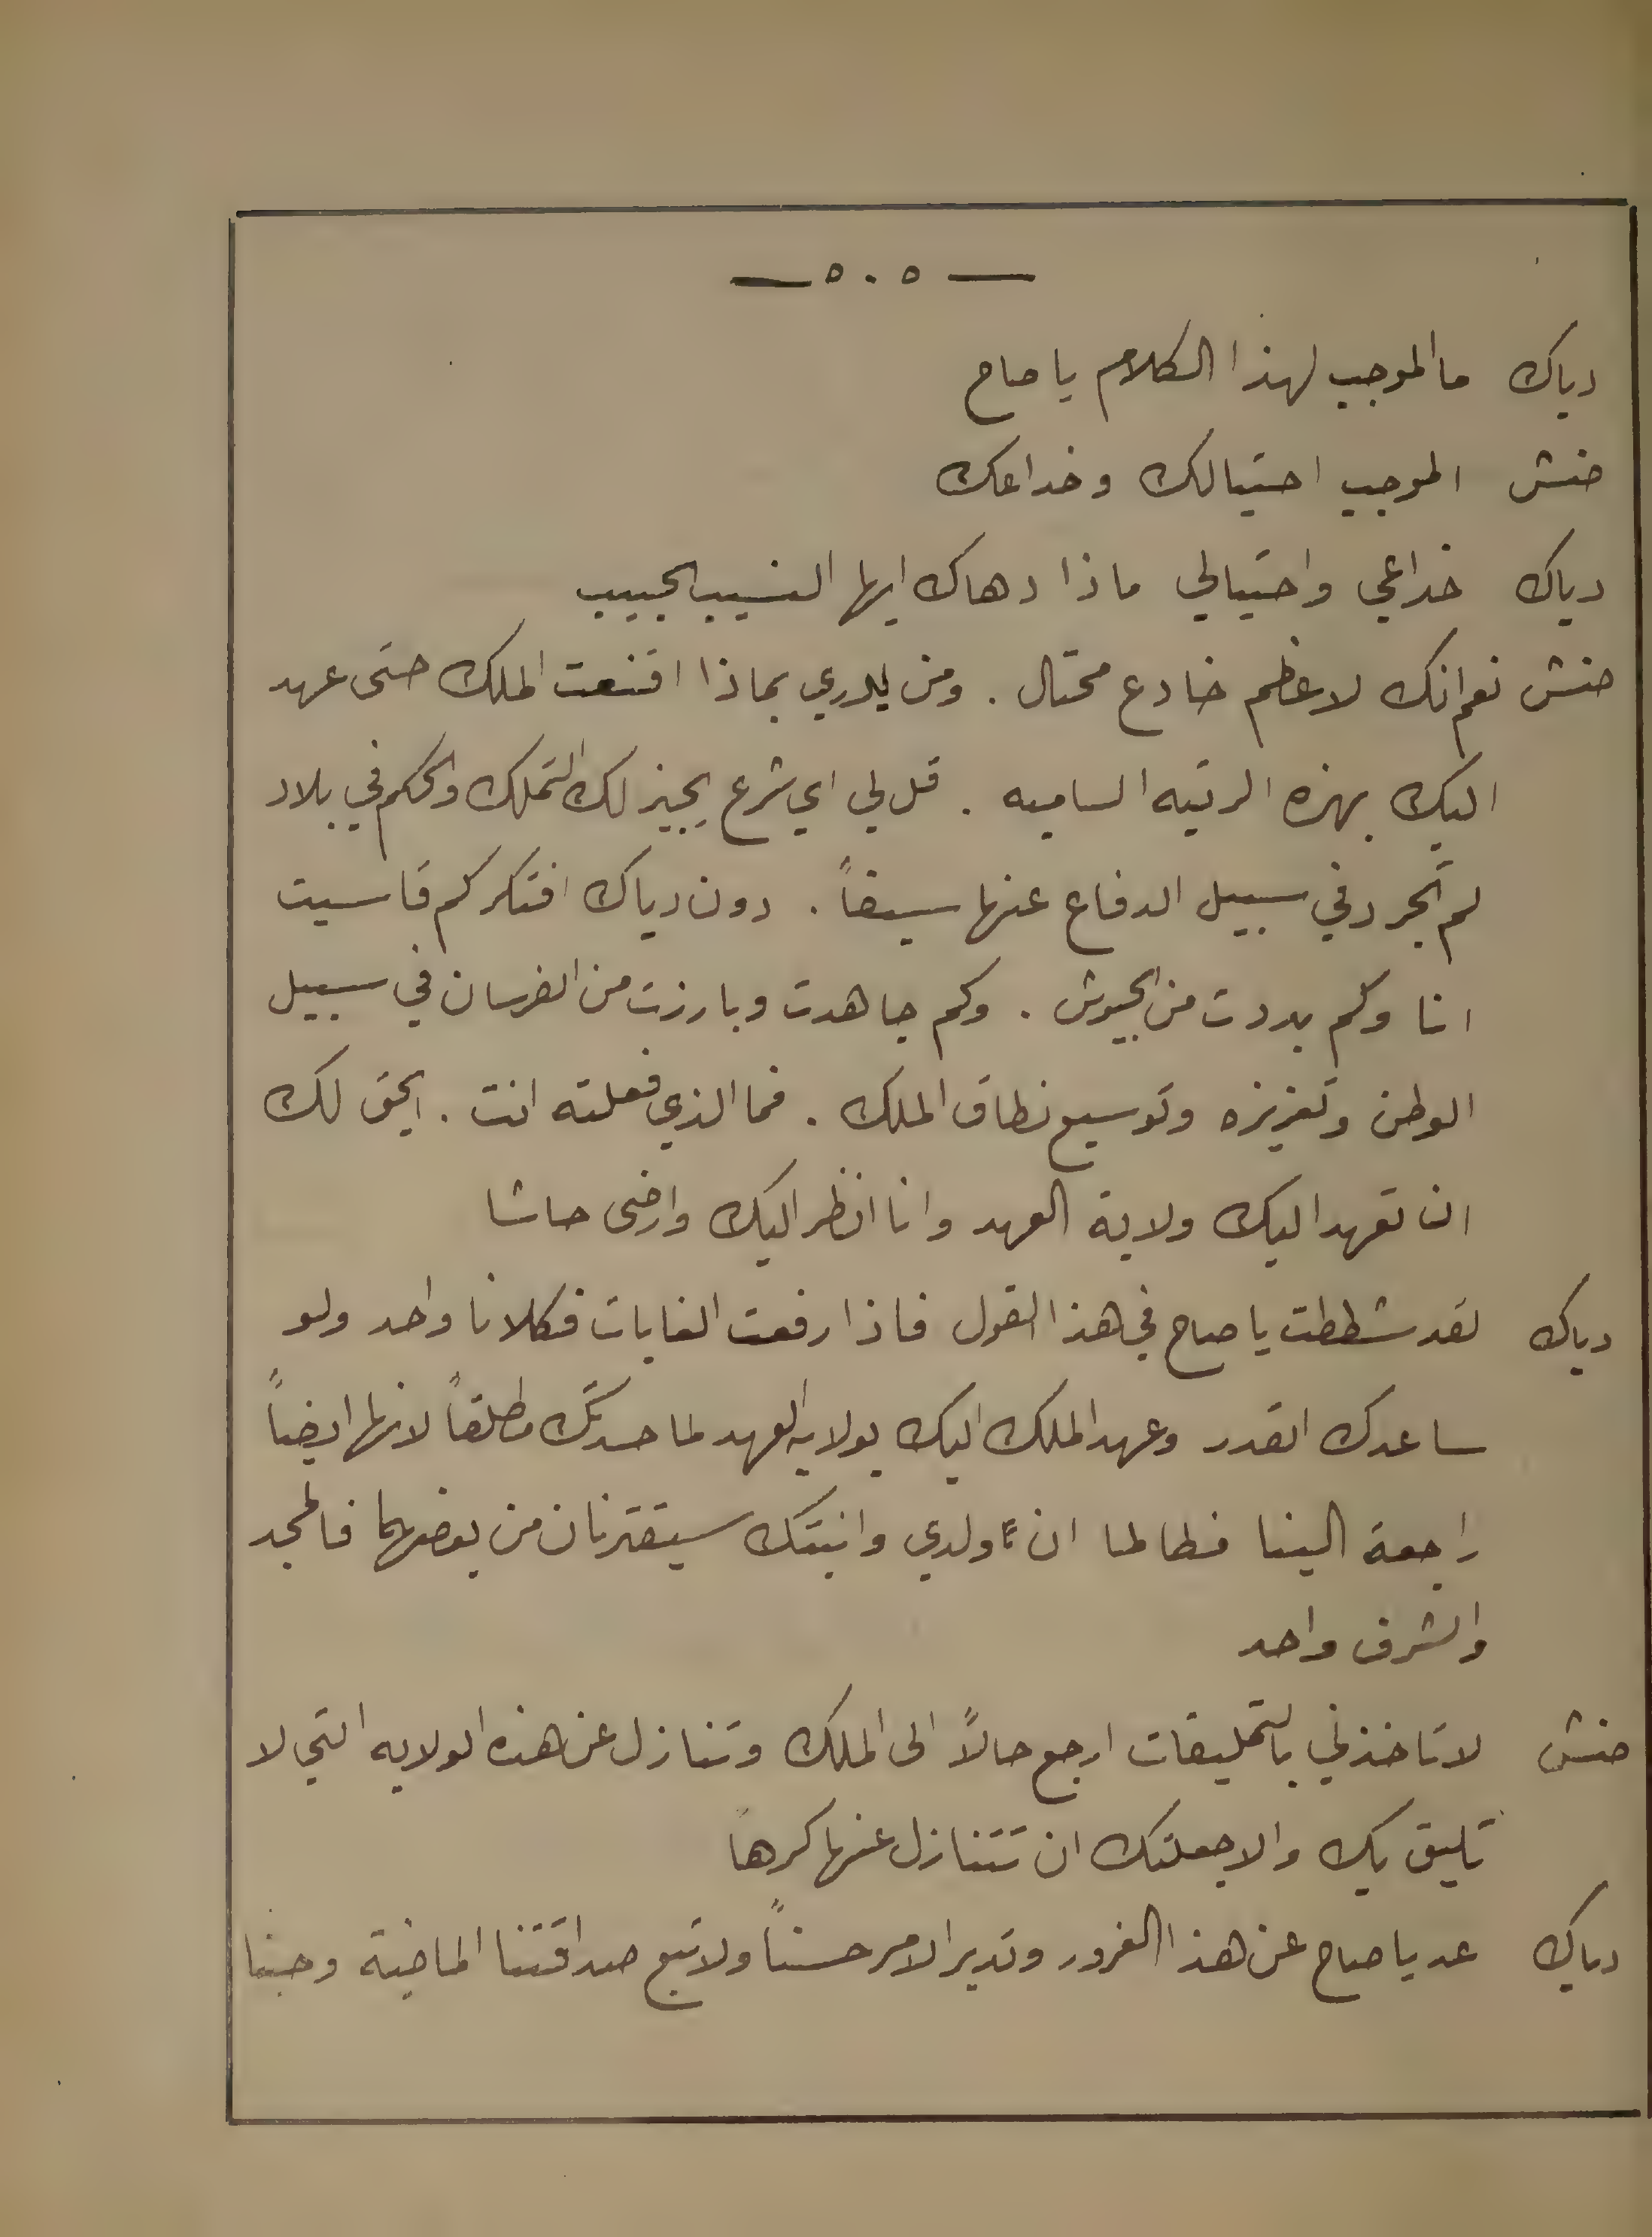 — ٥٠٥ —
دياك ما الموجب لهذا الكلام يا صاح
منش الموجب احتيالك وخداعك
دياك خداعي واحتيالي ماذا دهاك ايها النسيب الحبيب
منش نعم انك لاعظم خادع محتال . ومن يدري بماذا اقنعت الملك حتى عهد
اليك بهذه الرتبه الساميه . قل لي اي شرع يجيز لك التملك والحكم في بلاد
لم تجرد في سبيل الدفاع عنها سيفاً . دون دياك افتكر كم قاسيت
انا وكم بددت من الجيوش . وكم جاهدت وبارزت من الفرسان في سبيل
الوطن وتعزيزه وتوسيع نطاق الملك . فما الذي فعلته انت . ايحق لك
ان تعهد اليك ولاية العهد وانا انظر اليك وارضى حاشا
دياك لقد شططت يا صاح في هذا القول فاذا رفعت الغايات فكلانا واحد ولو
ساعدك القدر وعهد الملك اليك بولايه العهد لما حسدتك مطلقاً لانها ايضاً
راجعة الينا فطالما ان ولدي وابنتك سيقترنان من بعضهما فالمجد
والشرف واحد
منش لا تاخذني بالتمليقات ارجع حالاً الى الملك وتنازل عن هذه الولايه التي لا
تليق بك والا جعلتك ان تتنازل عنها كرهاً
دياك عد يا صاح عن هذا الغرور وتدبر الامر حسناً ولا تبع صداقتنا الماضية وحبنا